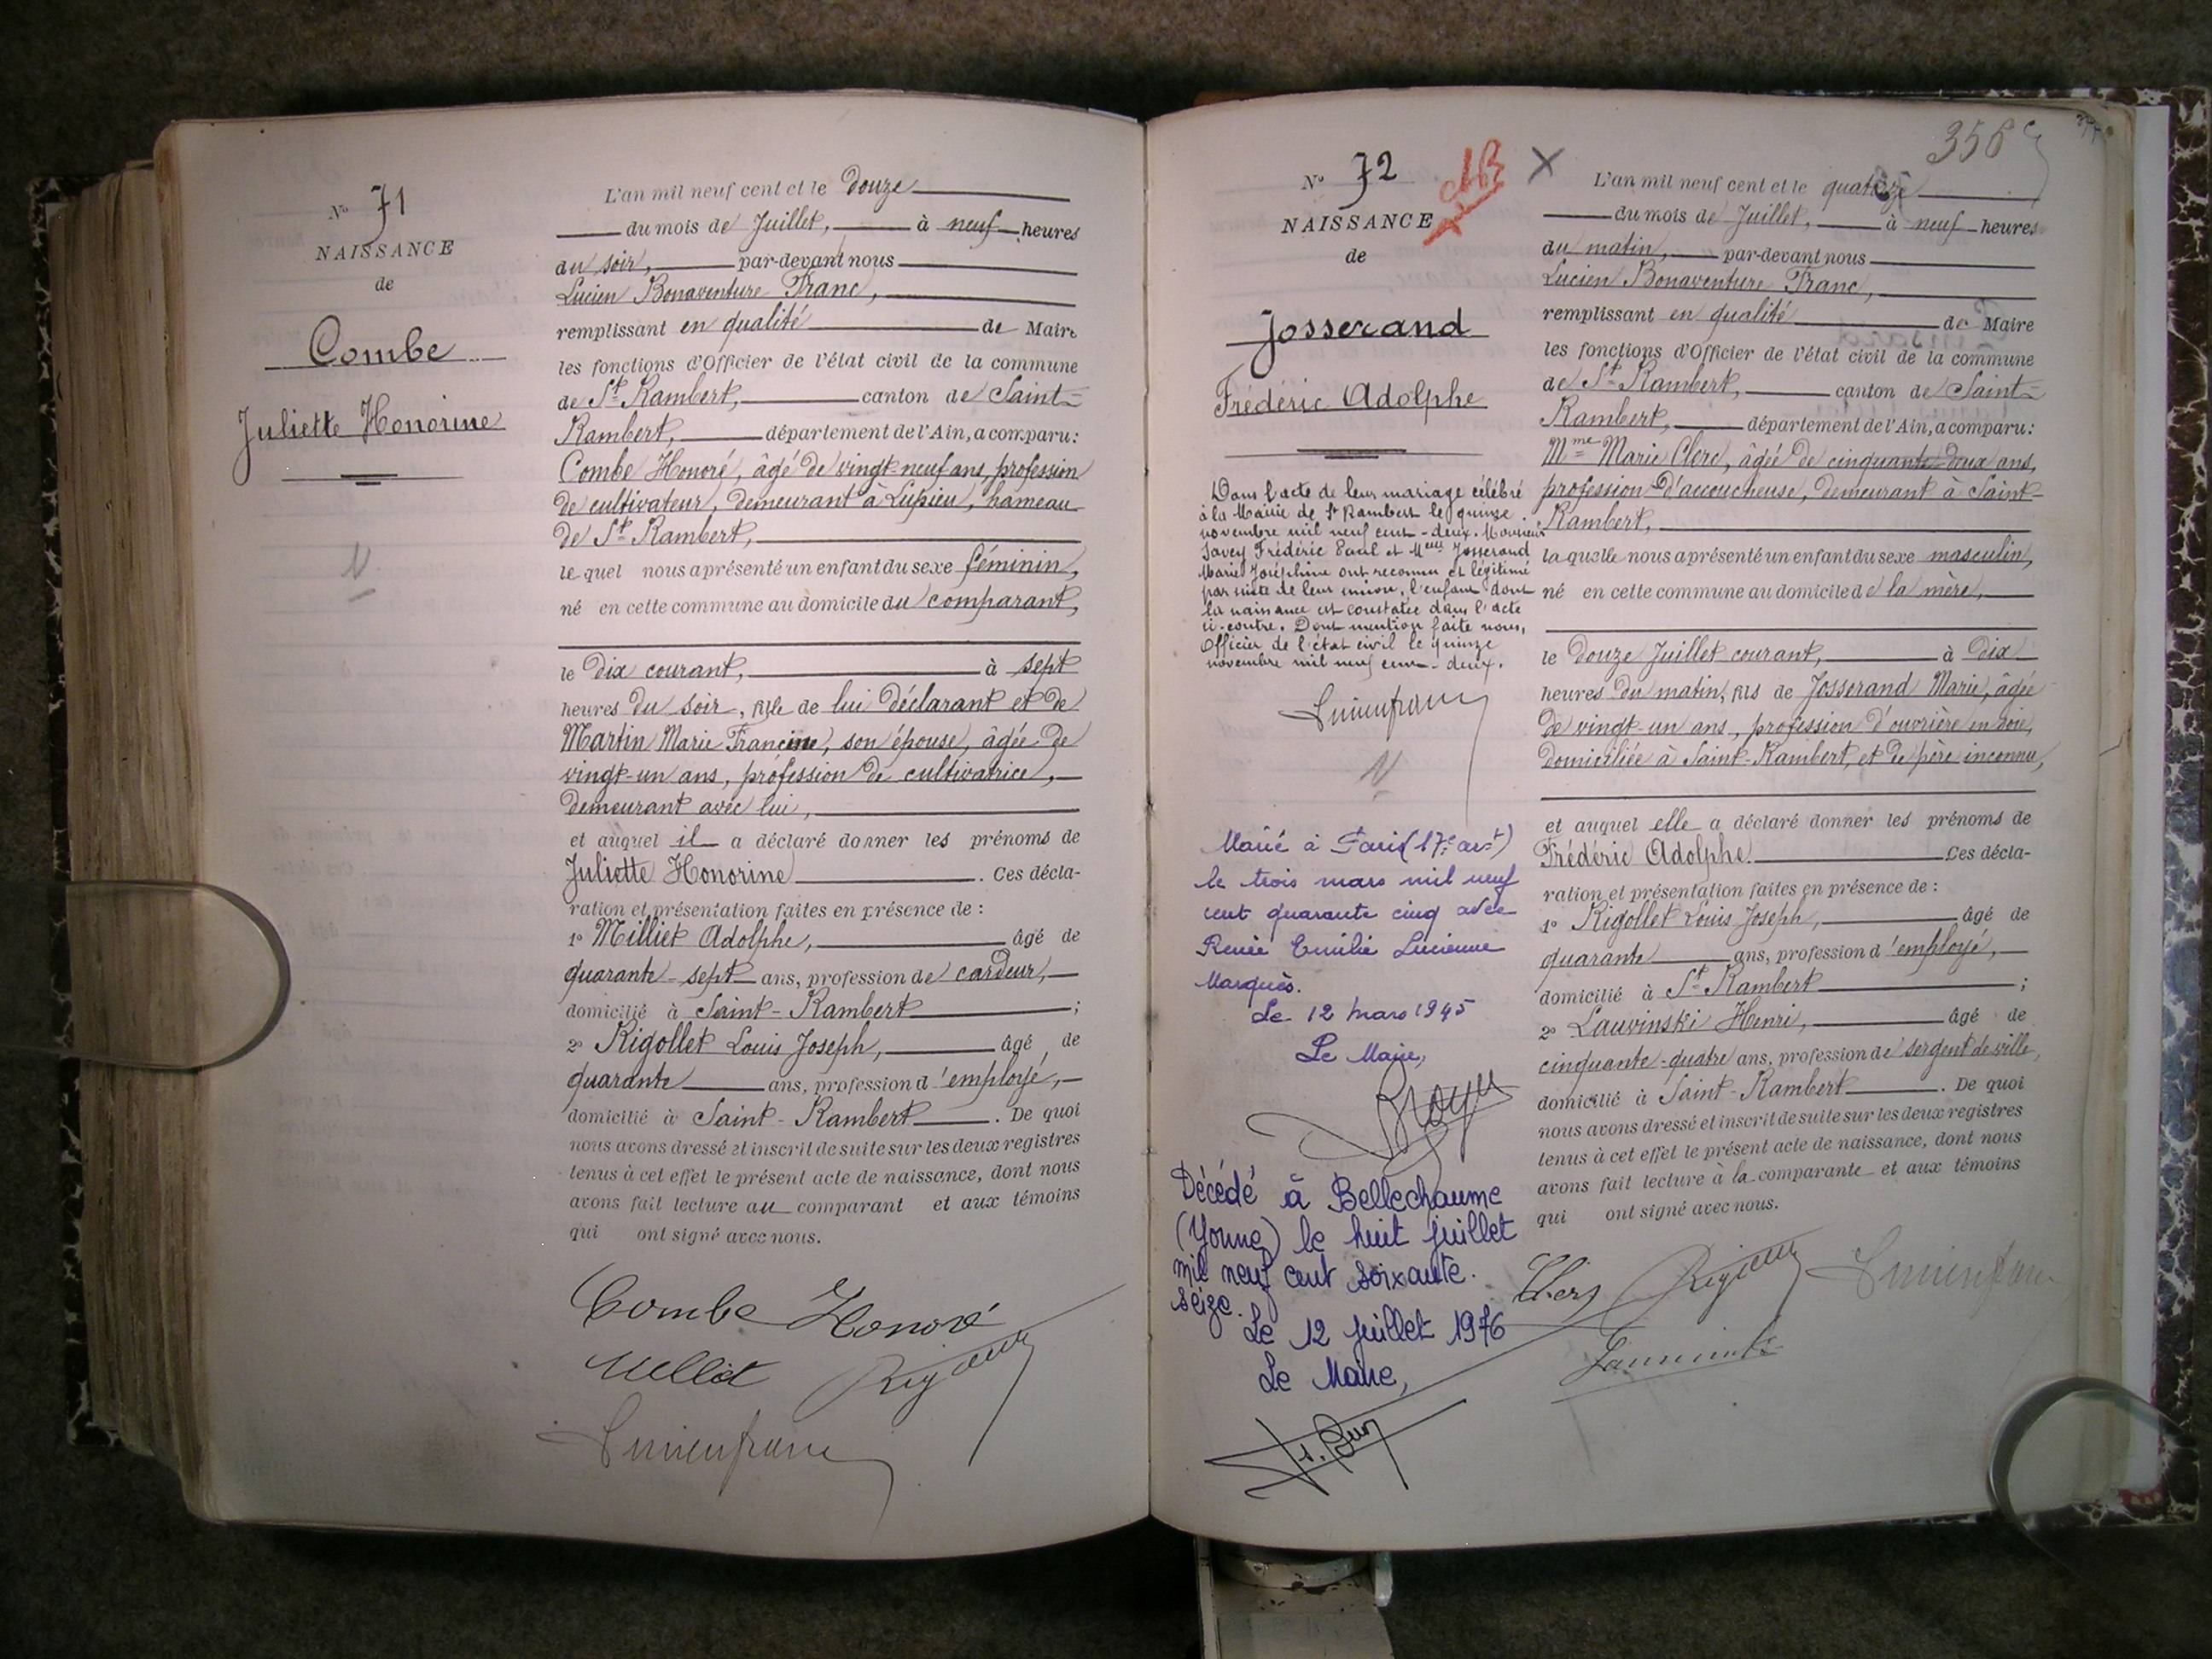 N° 71
NAISSANCE
de
Combe
Juliette Honorine
N
L'an mil neuf cent et le douze
du mois de Juillet, à neuf heures
du soir, par-devant nous
Lucien Bonaventure Franc,
remplissant en qualité de Maire
les fonctions d'Officier de l'état civil de la commune
de St Rambert, canton de Saint-
Rambert, département de l'Ain, a comparu:
Combe Honoré, âgé de vingt-neuf ans, profession
de cultivateur, demeurant à Lupieu, hameau
de St Rambert,
lequel nous a présenté un enfant du sexe féminin,
né en cette commune au domicile du comparant,
le dix courant, à sept
heures du soir, fille de lui déclarant et de
Martin Marie Francine, son épouse, âgée de
vingt-un ans, profession de cultivatrice,
demeurant avec lui,
et auquel il a déclaré donner les prénoms de
Juliette Honorine. Ces décla-
ration et présentation faites en présence de :
1° Milliet Adolphe, âgé de
quarante-sept ans, profession de cardeur,
domicilié à Saint-Rambert ;
2° Rigollet Louis Joseph, âgé de
quarante ans, profession d'employé,
domicilié à Saint-Rambert. De quoi
nous avons dressé et inscrit de suite sur les deux registres
tenus à cet effet le présent acte de naissance, dont nous
avons fait lecture au comparant et aux témoins
qui ont signé avec nous.
Combe Honoré
356
N° 72
AB
X
NAISSANCE
de
Josserand
Frédéric Adolphe
Dans l'acte de leur mariage célébré
à la Mairie de St Rambert le quinze
novembre mil neuf cent-deux. Monsieur
Savey Frédéric Paul et Melle Josserand
Marie Joséphine ont reconnu et légitimé
par suite de leur union, l'enfant dont
la naissance est constatée dans l'acte
ci-contre. Dont mention faite nous,
Officier de l'état civil le quinze
novembre mil neuf cent-deux.
N
Marié à Paris (17e art)
le trois mars mil neuf
cent quarante cinq avec
Renée Emilie Lucienne
Marquès.
Le 12 mars 1945
Le Maire,
Décédé à Bellechaume
(Yonne) le huit juillet
mil neuf cent soixante.
seize.
Le 12 juillet 1976
Le Maire,
L'an mil neuf cent et le quatorze
du mois de Juillet, à neuf heures
du matin, par-devant nous
Lucien Bonaventure Franc,
remplissant en qualité de Maire
les fonctions d'Officier de l'état civil de la commune
de St Rambert, canton de Saint-
Rambert, département de l'Ain, a comparu:
Mme Marie Clerc, âgée de cinquante-deux ans,
profession d'accoucheuse, demeurant à Saint-
Rambert,
laquelle nous a présenté un enfant du sexe masculin,
né en cette commune au domicile de la mère,
le douze Juillet courant, à dix
heures du matin, fils de Josserand Marie, âgée
de vingt-un ans, profession d'ouvrière en soie,
domiciliée à Saint-Rambert, et de père inconnu,
et auquel elle a déclaré donner les prénoms de
Frédéric Adolphe. Ces décla-
ration et présentation faites en présence de :
1° Rigollet Louis Joseph, âgé de
quarante ans, profession d'employé,
domicilié à St Rambert ;
2° Lauvinski Henri, âgé de
cinquante-quatre ans, profession de sergent de ville,
domicilié à Saint-Rambert. De quoi
nous avons dressé et inscrit de suite sur les deux registres
tenus à cet effet le présent acte de naissance, dont nous
avons fait lecture à la comparante et aux témoins
qui ont signé avec nous.